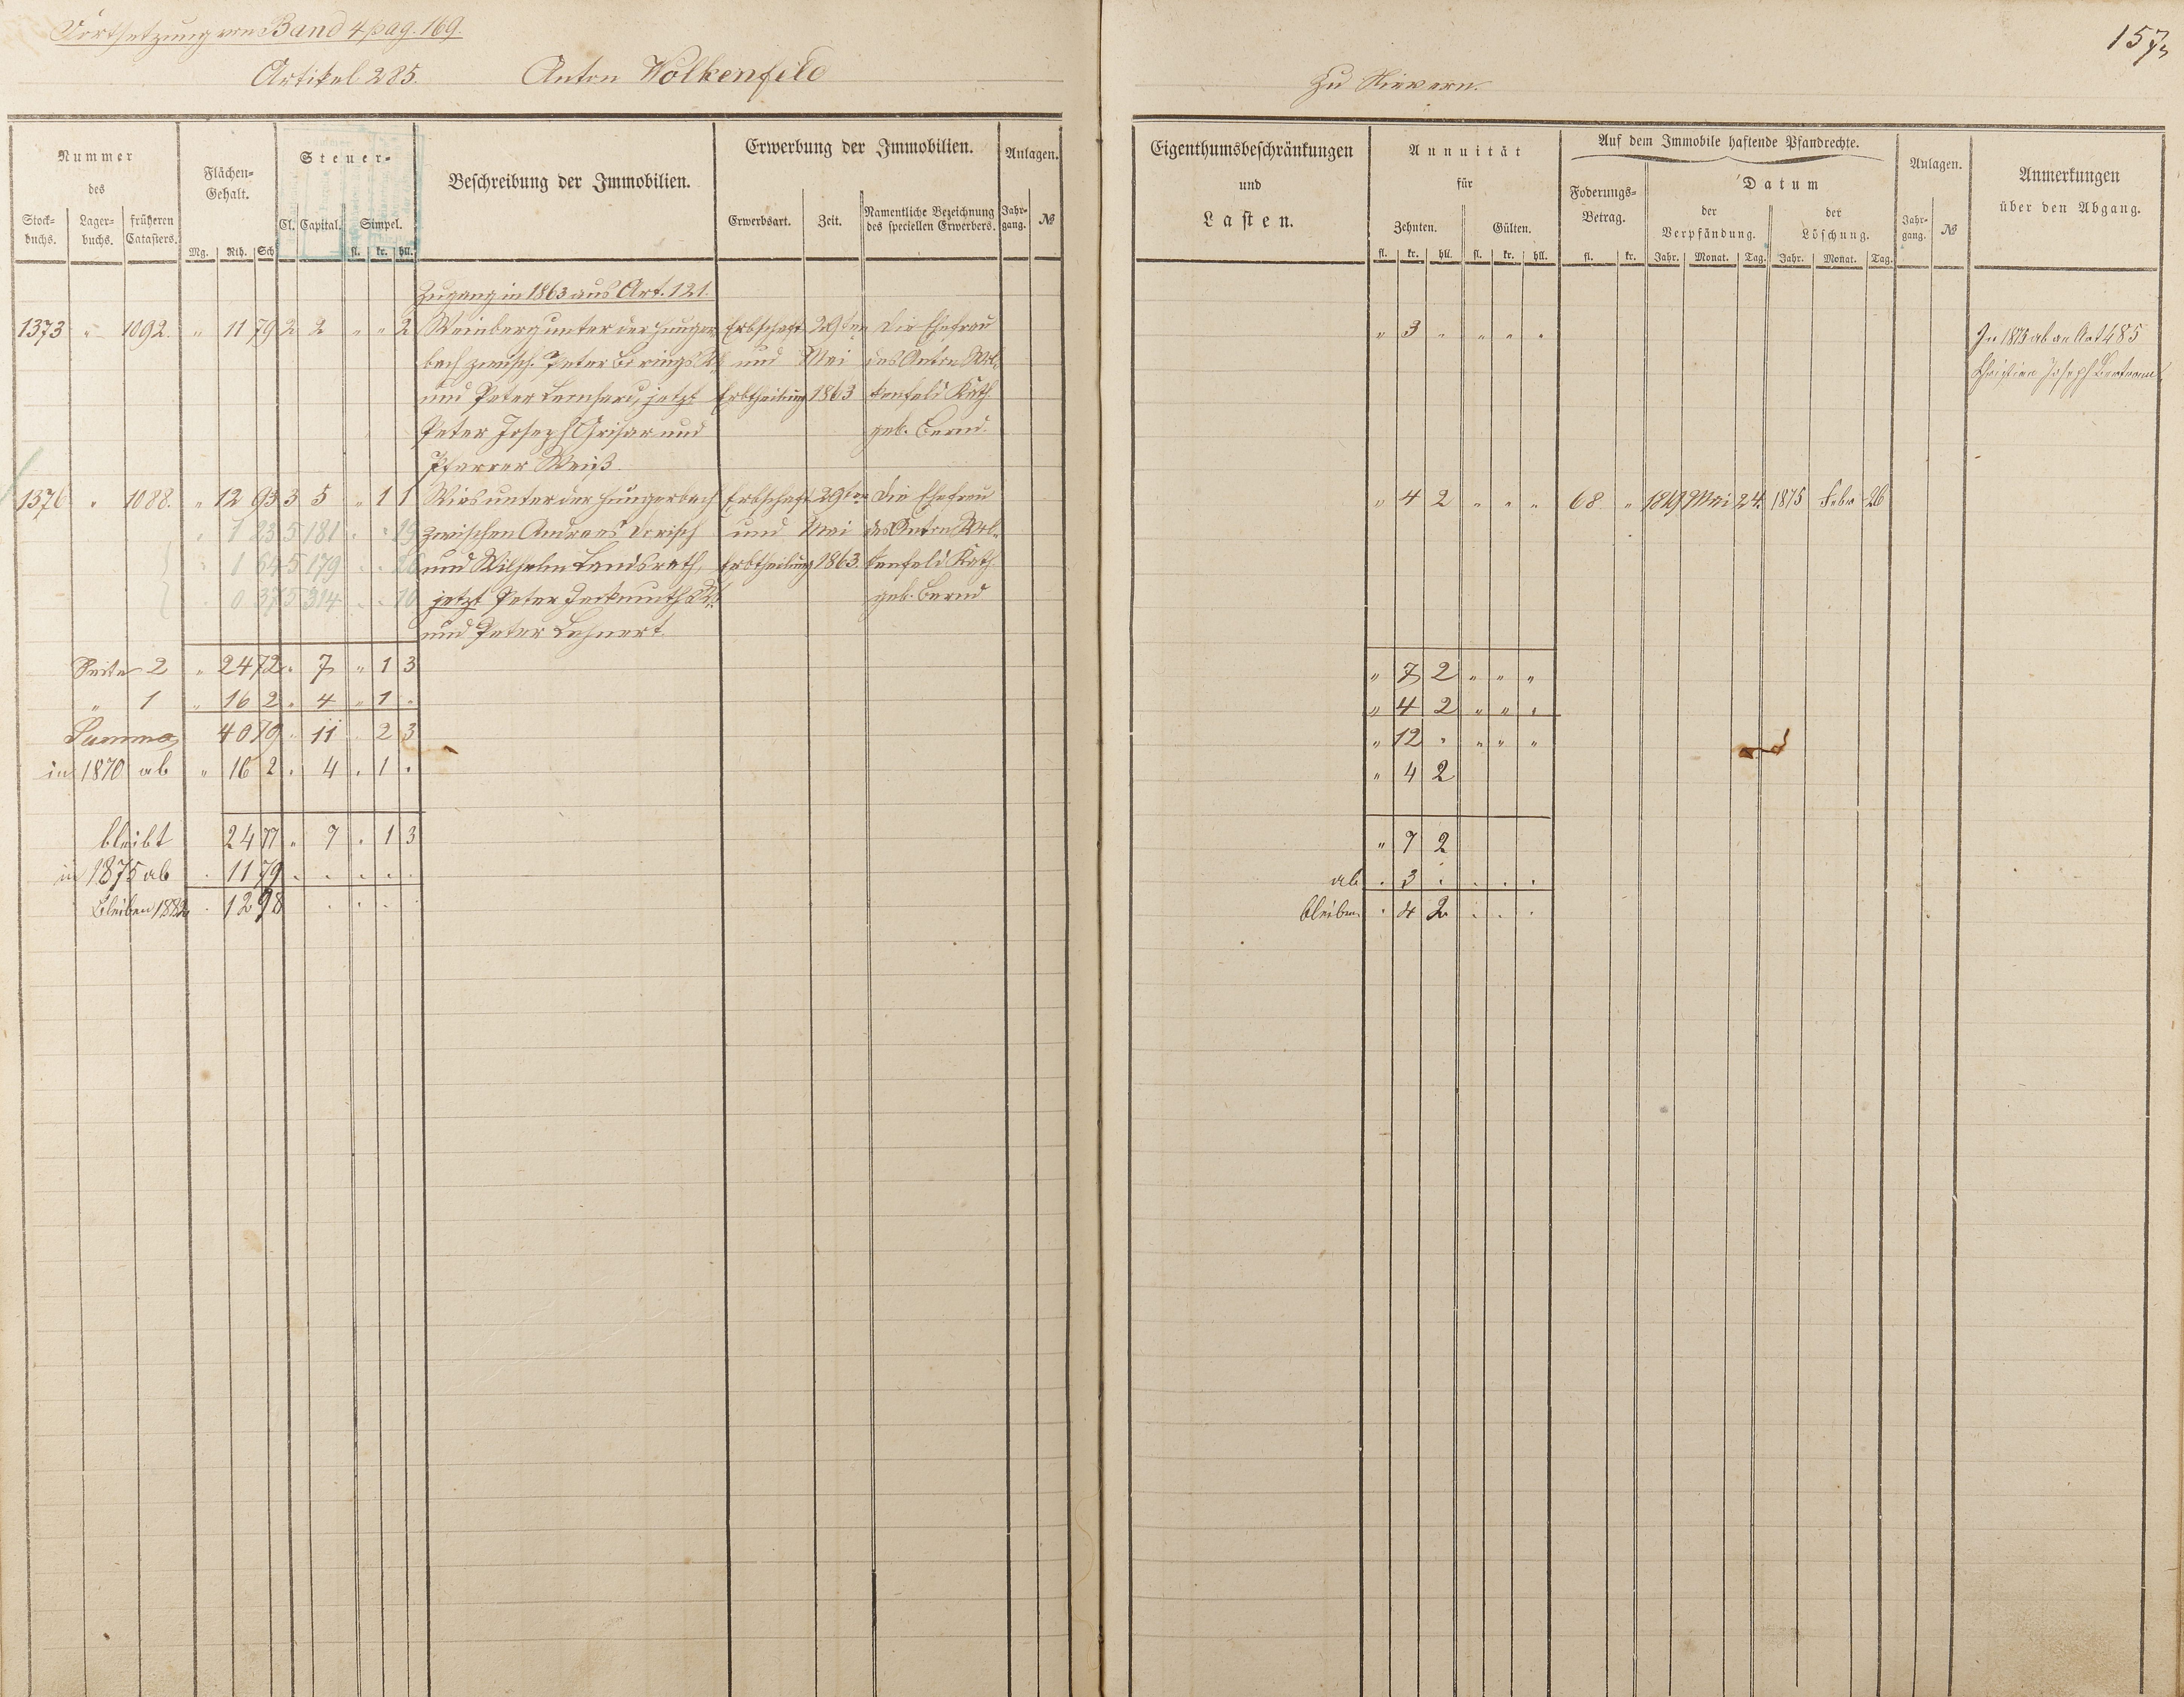 Fortsetzung von Band 4 pag. 169.
Artikel 285. Anton Wolkenfeld zu Nievern.
157
Nummer des
Stock-buchs. Lager-buchs. früheren Catasters.
Flächen-Gehalt.
Mg. Rth. Sch
Steuer-
Cl. Capital. Simpel.
fl. kr. hll.
Beschreibung der Immobilien.
Erwerbung der Immobilien.
Erwerbsart. Zeit. Namentliche Bezeichnung des speciellen Erwerbers.
Anlagen.
Jahr-gang. №
Eigenthumsbeschränkungen und Lasten.
Annuität für
Zehnten. Gülten.
fl. kr. hll. fl. kr. hll.
Auf dem Immobile haftende Pfandrechte.
Foderungs-Betrag.
fl. kr.
Datum
der Verpfändung. der Löschung.
Jahr. Monat. Tag. Jahr. Monat. Tag.
Anlagen.
Jahr-gang. №
Anmerkungen über den Abgang.
Zugang in 1863 aus Art. 121.
1373 " 1092. " 11 79 2 2 " " 2 Weinberg unter der Hunger Erbschaft 29ten Die Ehefrau " 3 " " " " In 1875 ab an Art 485
bach zwisch. Peter und Mai des Anton Wol- Christian Joseph
und Peter Leonhard, jetzt Erbtheilung 1863 kenfeld Kath.
Peter Joseph Grisar und geb. Bernd.
Pfarrer Weiß.
1376 " 1088. " 12 93 3 5 " 1 1 Wies unter der Hungerbach Erbschaft 29ten Die Ehefrau " 4 2 " " " 68 " 1849 Mai 24. 1875 Febr 26
1 23 5 181 19 zwischen Andreas und Mai des Anton Wol-
1 64 5 179 und Wilhelm Landsrath, Erbtheilung 1863. kenfeld Kath.
0 37 5 314 10 jetzt Peter geb. Bernd
und Peter Lehnert.
Seite 2 " 24 72 " 7 " 1 3 " 7 2 " " "
" 1 " 16 2 " 4 " 1 " " 4 2 " " "
Summa 40 79 " 11 " 2 3 " 12 " " " "
in 1870 ab " 16 2 " 4 " 1 " " 4 2
bleibt 24 77 " 7 " 1 3 " 7 2
in 1875 ab " 11 79 " " " " ab " 3 " " " "
bleiben 1882 " 12 98 " " " bleiben " 4 2 " " "